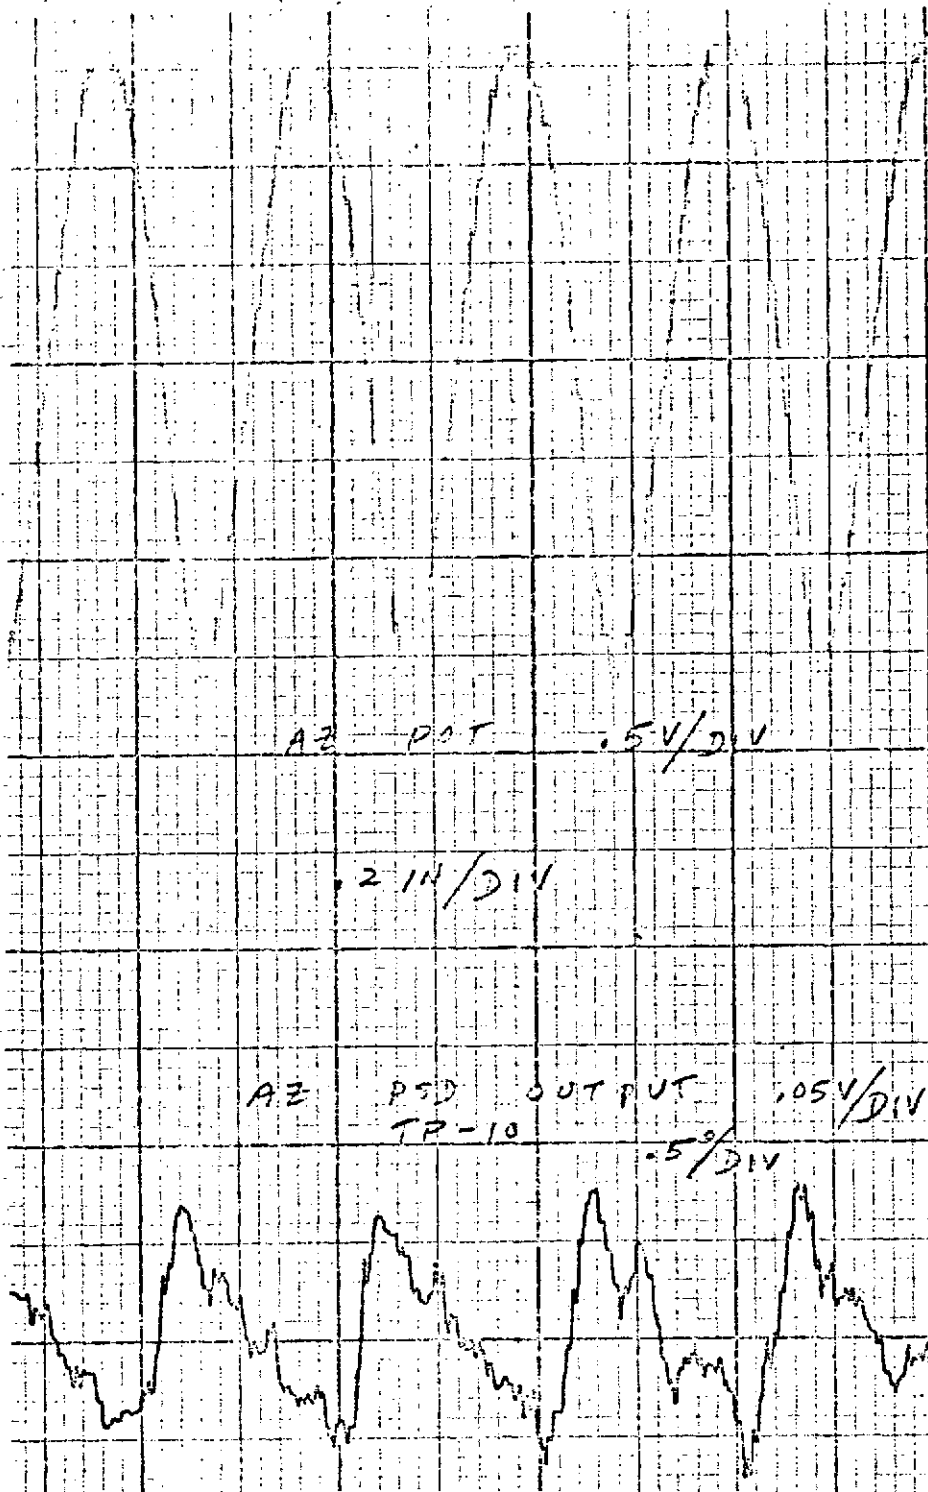 AZ POT .5V/DIV
.2 IN/DIV
AZ PSD OUTPUT .05V/DIV
TP-10
.5°/DIV